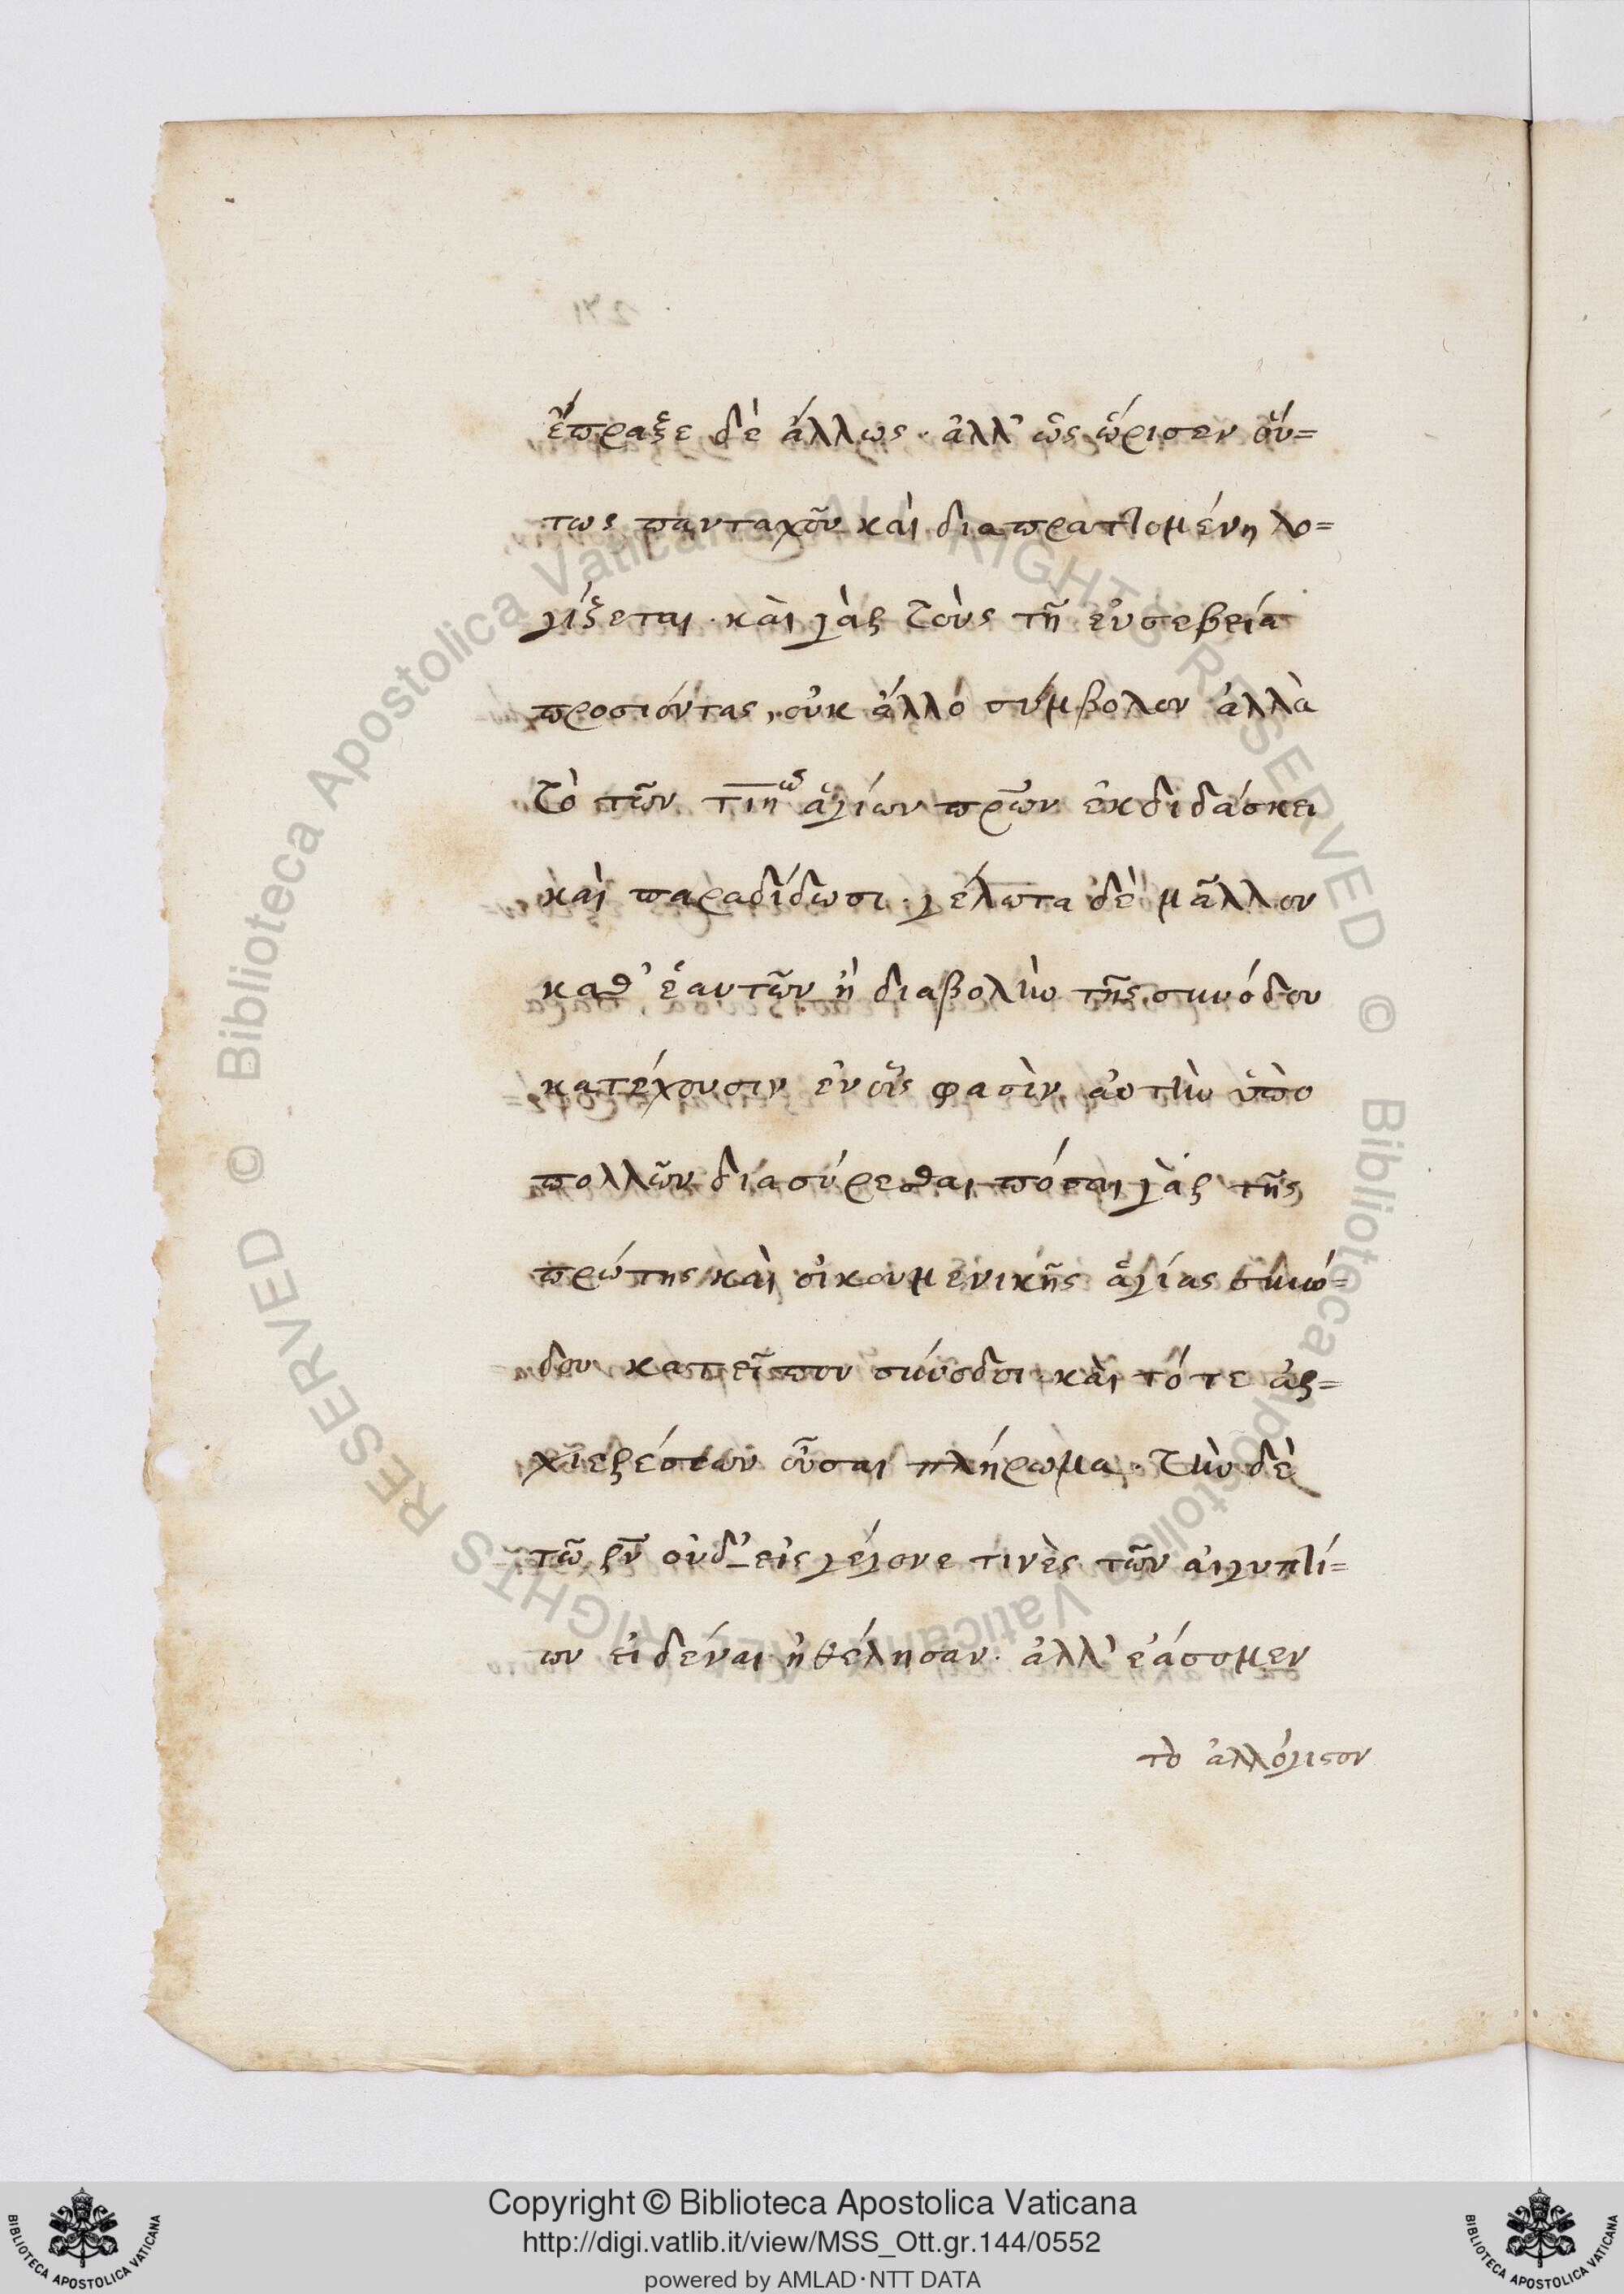 ἔπραξε δὲ ἄλλως· ἀλλ' ὡς ὥρισεν οὕ=
τως πανταχοῦ καὶ διαπραττομένη λο=
γίζεται· καὶ γὰρ τοὺς τῇ εὐσεβείᾳ
προσιόντας, οὐκ ἄλλο σύμβολον ἀλλὰ
τὸ τῶν τιηʹ ἁγίων πρων ἐκδιδάσκει
καὶ παραδίδωσι· γέλωτα δὲ μᾶλλον
καθ' ἑαυτῶν ἢ διαβολὴν τῆς συνόδου
κατέχουσιν ἐν οἷς φασὶν αὐτὴν ὑπὸ
πολλῶν διασύρεσθαι πόσαι γὰρ τῆς
πρώτης καὶ οἰκουμενικῆς ἁγίας συνό=
δου κατεῖπον σύνοδοι καὶ τότε ἀρ=
χιερέων οὖσαι πλήρωμα· τὴν δὲ
τῶν ρν οὐδ' εἰς γέγονε τινὲς τῶν αἰγυπτί=
ων εἰδέναι ἠθέλησαν· ἀλλ' ἐάσομεν
τὸ ἀλλόγιστον
271
Copyright © Biblioteca Apostolica Vaticana
http://digi.vatlib.it/view/MSS_Ott.gr.144/0552
powered by AMLAD·NTT DATA
BIBLIOTECA APOSTOLICA VATICANA
BIBLIOTECA APOSTOLICA VATICANA
© Biblioteca Apostolica Vaticana ALL RIGHTS RESERVED
© Biblioteca Apostolica Vaticana ALL RIGHTS RESERVED